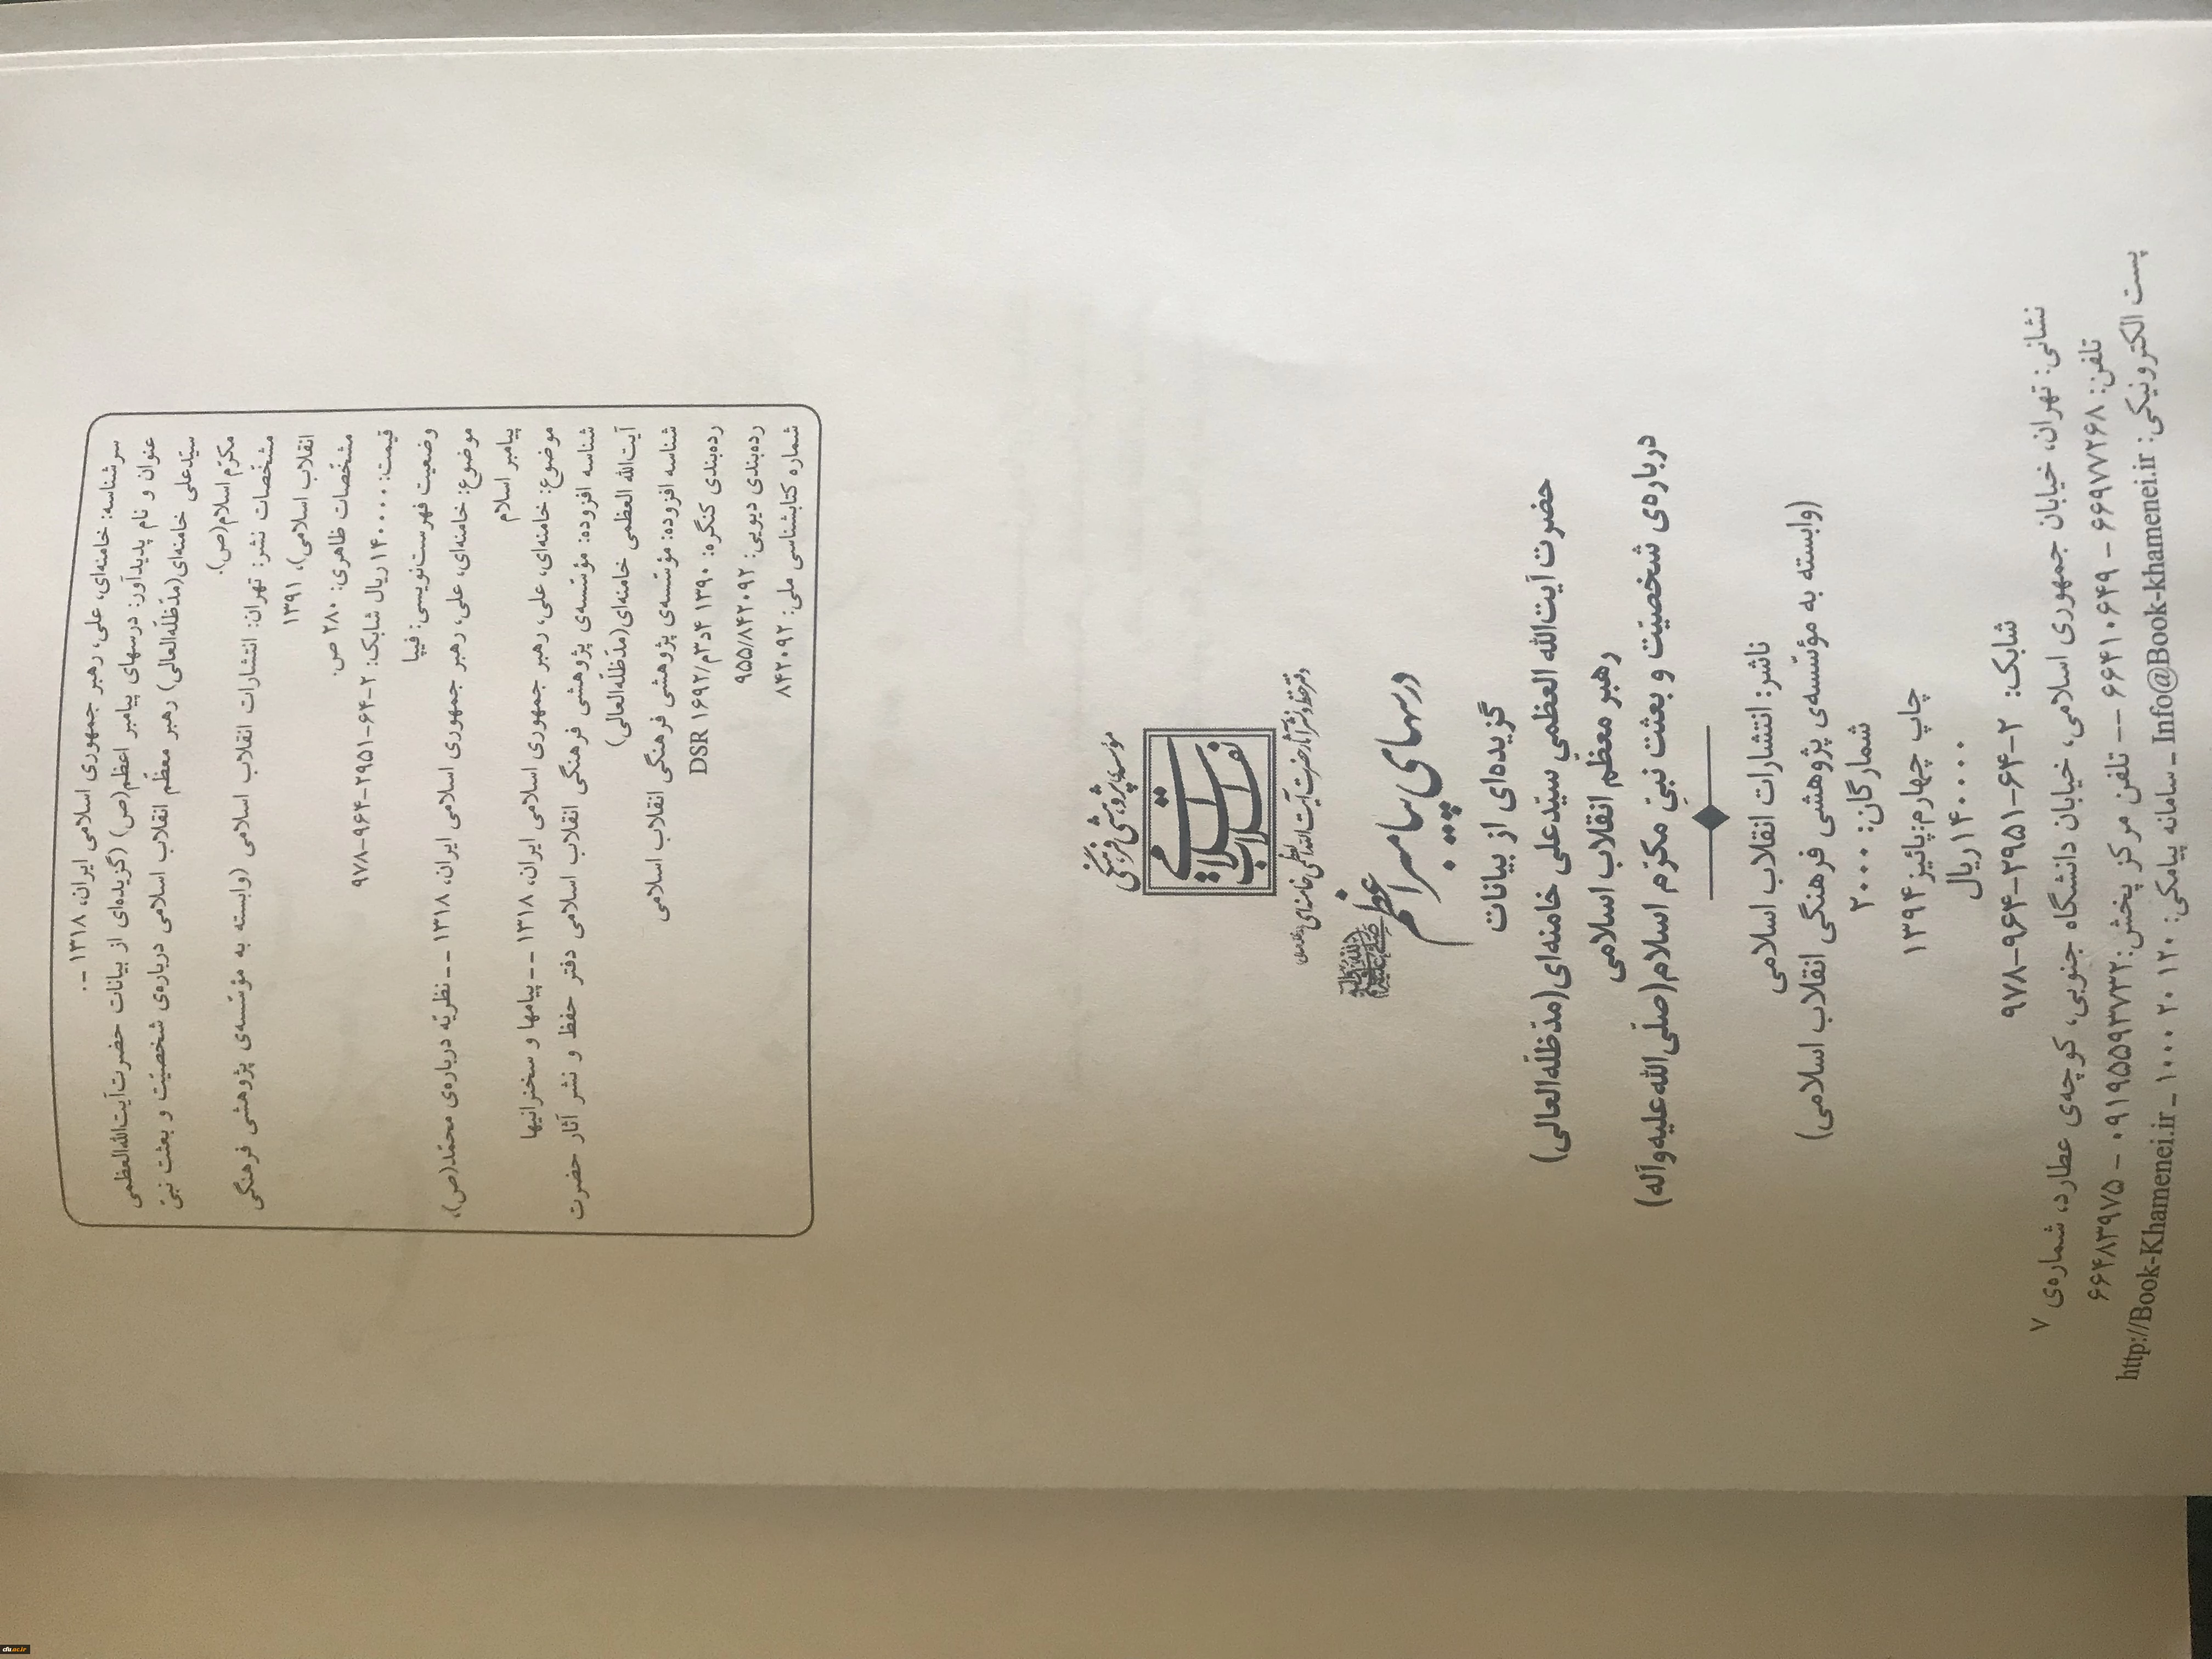 سرشناسه: خامنه‌ای، علی، رهبر جمهوری اسلامی ایران، ۱۳۱۸ -.
عنوان و نام پدیدآور: درسهای پیامبر اعظم(ص) (گزیده‌ای از بیانات حضرت‌آیت‌الله‌العظمی
سیّدعلی خامنه‌ای(مدّظلّه‌العالی) رهبر معظّم انقلاب اسلامی درباره‌ی شخصیّت و بعثت نبیّ
مکرّم اسلام(ص).
مشخّصات نشر: تهران: انتشارات انقلاب اسلامی (وابسته به مؤسّسه‌ی پژوهشی فرهنگی
انقلاب اسلامی)، ۱۳۹۱
مشخّصات ظاهری: ۲۸۰ ص.
قیمت: ۱۴۰۰۰۰ ریال شابک: ۲-۶۴-۲۹۵۱-۹۶۴-۹۷۸
وضعیت فهرست‌نویسی: فیپا
موضوع: خامنه‌ای، علی، رهبر جمهوری اسلامی ایران، ۱۳۱۸ -- نظریّه درباره‌ی محمّد(ص)،
پیامبر اسلام
موضوع: خامنه‌ای، علی، رهبر جمهوری اسلامی ایران، ۱۳۱۸ -- پیامها و سخنرانیها
شناسه افزوده: مؤسّسه‌ی پژوهشی فرهنگی انقلاب اسلامی دفتر حفظ و نشر آثار حضرت
آیت‌الله العظمی خامنه‌ای(مدّظلّه‌العالی)
شناسه افزوده: مؤسّسه‌ی پژوهشی فرهنگی انقلاب اسلامی
رده‌بندی کنگره: ۱۳۹۰ ۴د۳م/۱۶۹۲ DSR
رده‌بندی دیویی: ۹۵۵/۸۴۲۰۹۲
شماره کتابشناسی ملی: ۸۴۲۰۹۲
مؤسسه پژوهشی فرهنگی
انقلاب اسلامی
دفتر حفظ و نشر آثار حضرت آیت‌الله العظمی خامنه‌ای
درسهای پیامبر اعظم
گزیده‌ای از بیانات
حضرت آیت‌الله العظمی سیّدعلی خامنه‌ای(مدّظلّه‌العالی)
رهبر معظّم انقلاب اسلامی
درباره‌ی شخصیّت و بعثت نبیّ مکرّم اسلام(صلّی‌الله‌علیه‌وآله)
ناشر: انتشارات انقلاب اسلامی
(وابسته به مؤسّسه‌ی پژوهشی فرهنگی انقلاب اسلامی)
شمارگان: ۲۰۰۰
چاپ چهارم:پائیز ۱۳۹۴
۱۴۰۰۰۰ریال
شابک: ۲-۶۴-۲۹۵۱-۹۶۴-۹۷۸
نشانی: تهران، خیابان جمهوری اسلامی، خیابان دانشگاه جنوبی، کوچه‌ی عطارد، شماره‌ی ۷
تلفن: ۶۶۹۷۷۲۶۸ - ۶۶۴۱۰۶۴۹ -- تلفن مرکز پخش:۰۹۱۹۵۵۹۳۷۳۲ - ۶۶۴۸۳۹۷۵
پست الکترونیکی: Info@Book-khamenei.ir ـ سامانه پیامکی: ۱۰۰۰۲۰۱۲۰ ـ http://Book-Khamenei.ir
cfu.ac.ir